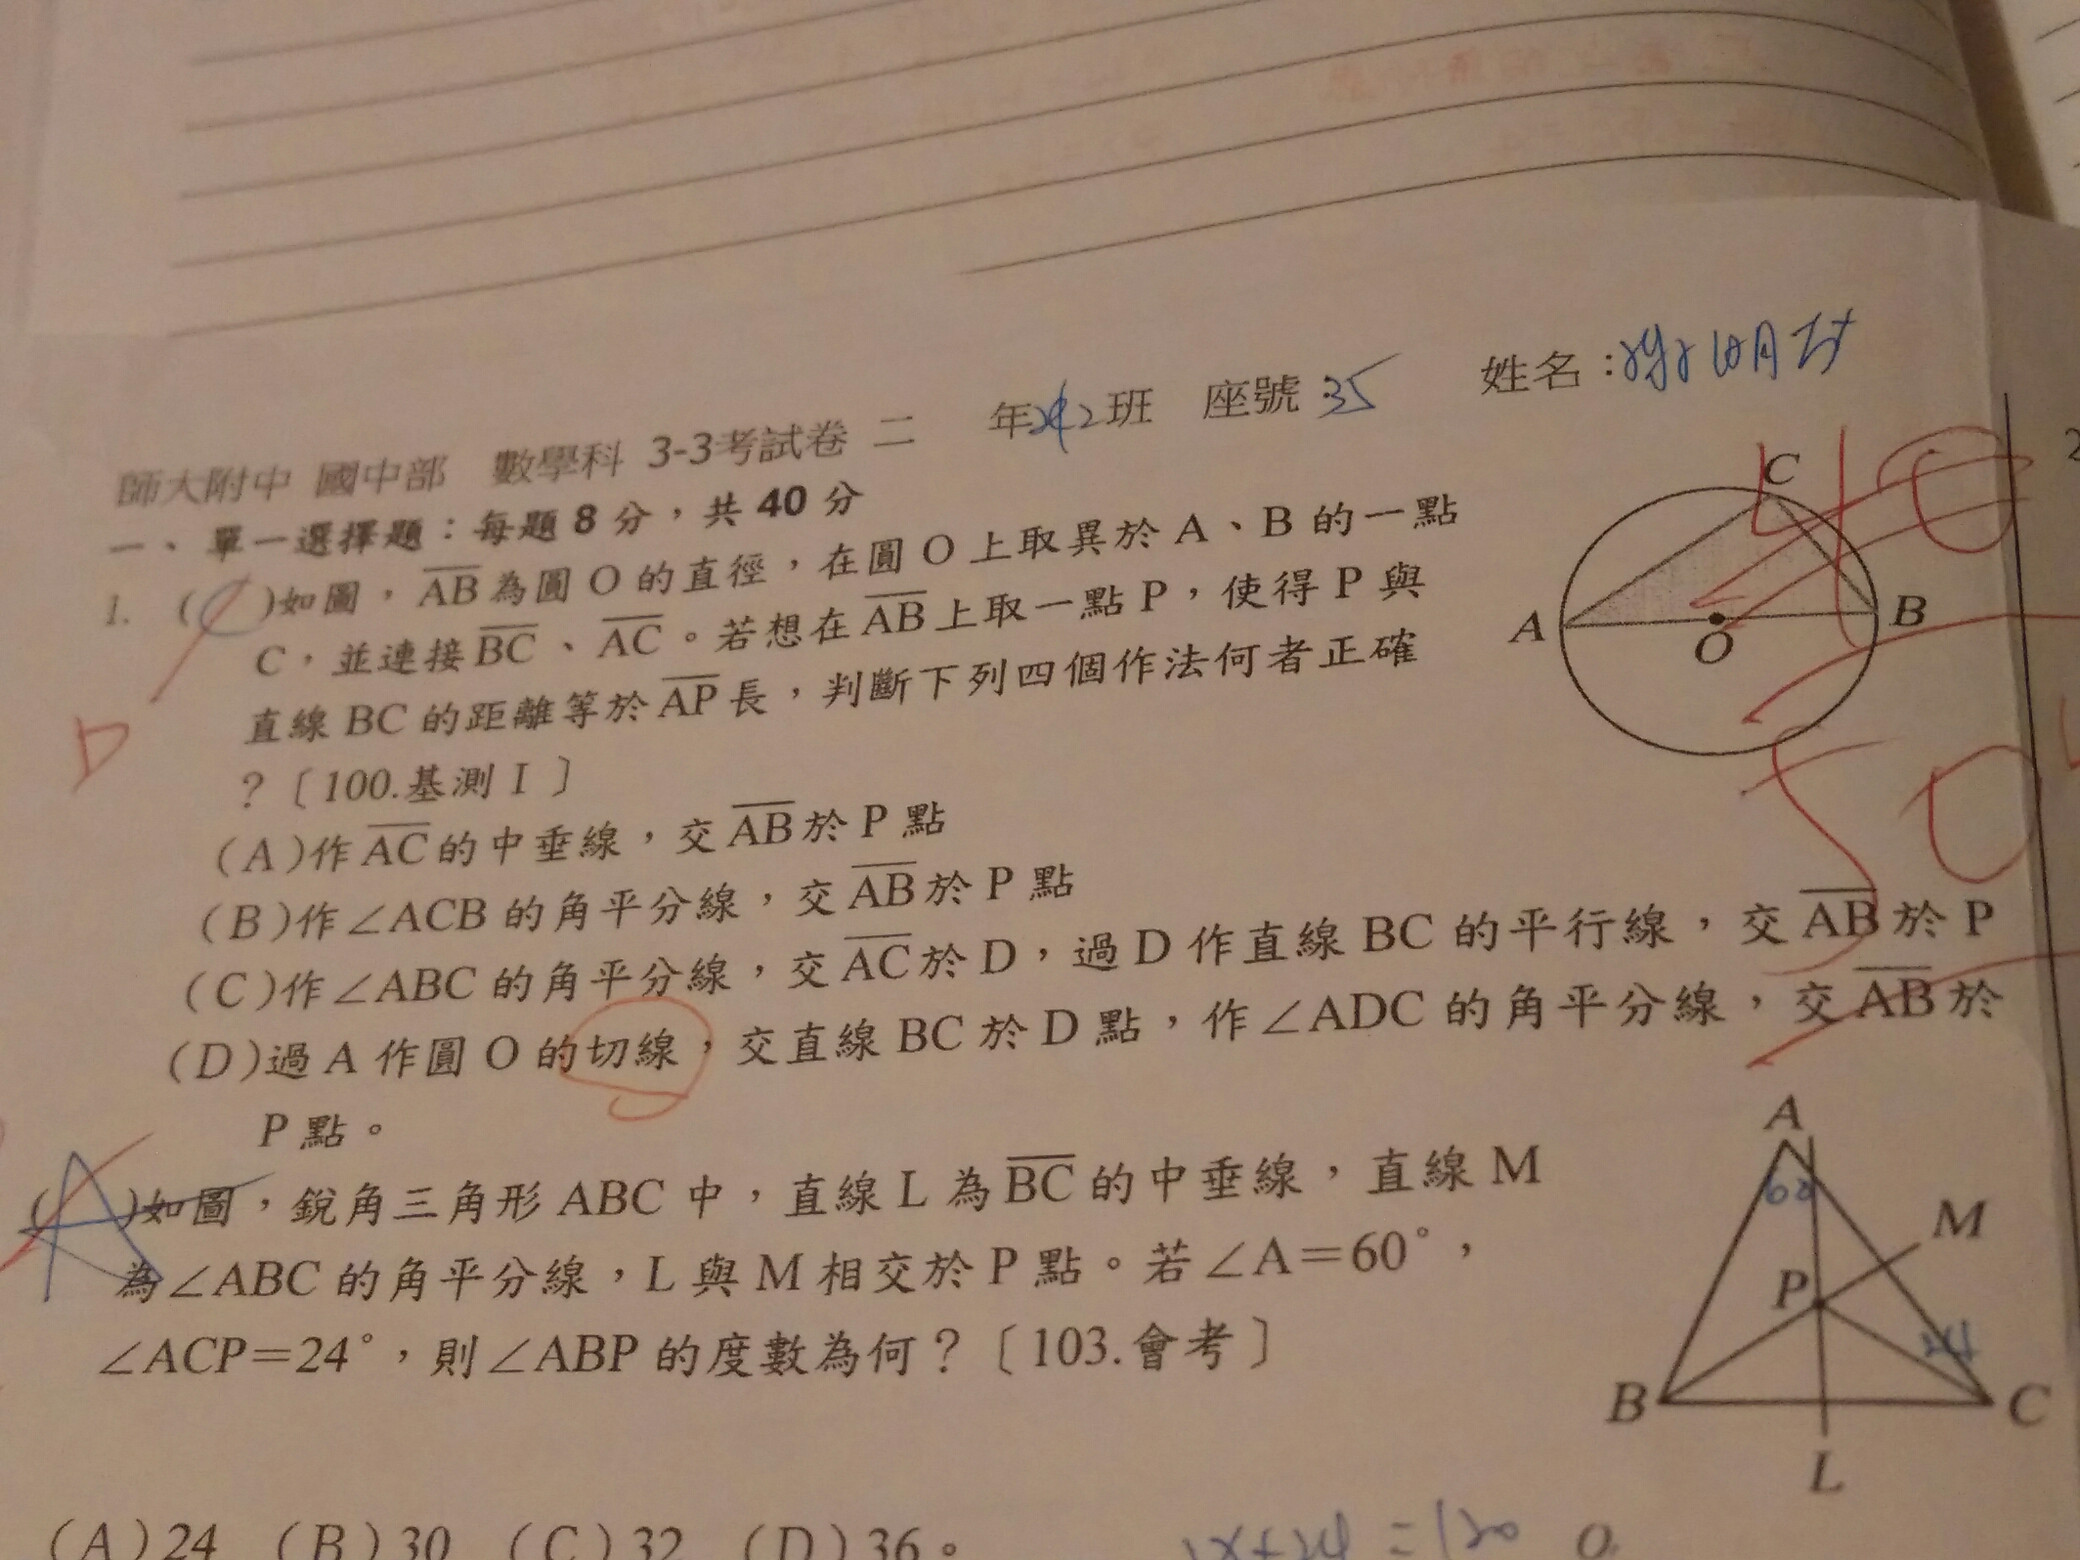 師大附中 國中部 數學科 3-3考試卷 二 年 班 座號:35 姓名:
一、單一選擇題:每題 8 分,共 40 分
1. (C)如圖,AB為圓 O 的直徑,在圓 O 上取異於 A、B 的一點
C,並連接BC、AC。若想在AB上取一點 P,使得 P 與
直線 BC 的距離等於AP長,判斷下列四個作法何者正確
?〔100.基測 I〕
D
(A)作AC的中垂線,交AB於 P 點
(B)作∠ACB 的角平分線,交AB於 P 點
(C)作∠ABC 的角平分線,交AC於 D,過 D 作直線 BC 的平行線,交AB於 P
(D)過 A 作圓 O 的切線,交直線 BC 於 D 點,作∠ADC 的角平分線,交AB於
P 點。
C
A
O
B
50
( )如圖,銳角三角形 ABC 中,直線 L 為BC的中垂線,直線 M
為∠ABC 的角平分線,L 與 M 相交於 P 點。若∠A=60°,
∠ACP=24°,則∠ABP 的度數為何?〔103.會考〕
A
60
M
P
24
B
C
L
(A)24 (B)30 (C)32 (D)36。